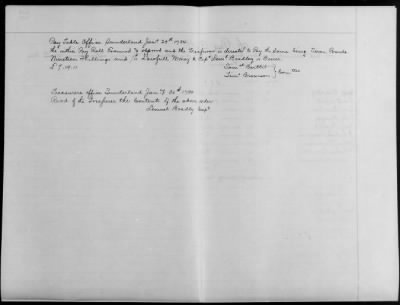 Pay Table Office Sunderland Jany 29th 1780
the within Pay Roll Examind & approvd and the Treasurer is directd to Pay the Same being Seven Pounds
Nineteen Shillings and 11 Lawfull Money to Capt Laml Bradley in Corner
£7.19.11
Saml Buttel
Laml Brownson } Comttee
Treasurers office Sunderland Jany 30th 1780
Recd of the Treasurer the Contents of the above order
Lemuel Bradley Capt